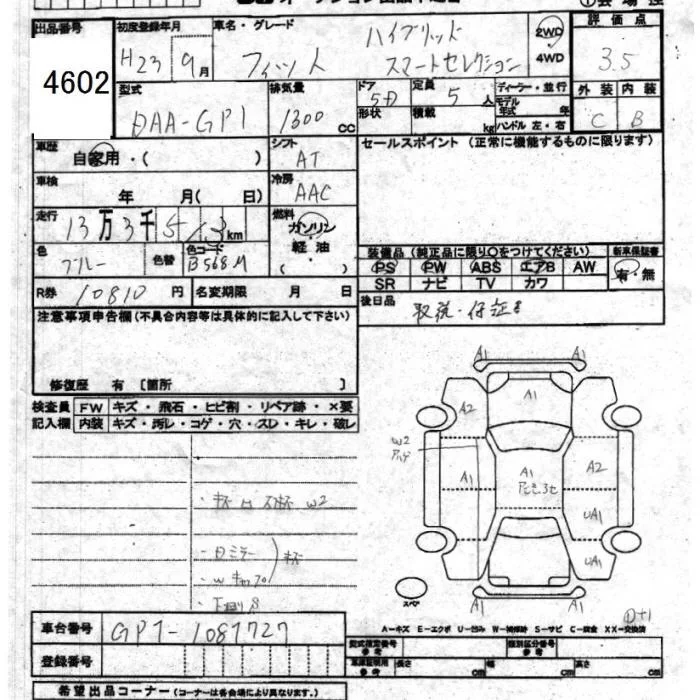 出品番号 初度登録年月 車名・グレード 2WD 4WD 評価点
4602
H23 9月 フィット ハイブリッド スマートセレクション 3.5
型式 排気量 ドア 定員 ディーラー・並行 外装 内装
DAA-GP1 1300 cc 5D 5人 モデル年式 年 C B
形状 積載 kg ハンドル 左・右
車歴 自家用・( ) シフト AT セールスポイント (正常に機能するものに限ります)
車検 年 月( 日) 冷房 AAC
走行 13万3千513km 燃料 ガソリン 軽油 ( )
色 ブルー 色替 色コード B568M
装備品 (純正品に限り○をつけてください) 新車保証書
PS PW ABS エアB AW 有・無
SR ナビ TV カワ
R券 10810円 名変期限 月 日 後日品 取説・保証書
注意事項申告欄(不具合内容等は具体的に記入して下さい)
修復歴 有 [箇所 ]
検査員 FW キズ・飛石・ヒビ割・リペア跡・×要
記入欄 内装 キズ・汚レ・コゲ・穴・スレ・キレ・破レ
A1 A1
A2 A1
W2
A1 A1 A2
UA1
UA1
A1 A1
スペア
W2
車台番号 GP1-1087727
登録番号
A=キズ E=エクボ U=凹み W=補修跡 S=サビ C=腐食 XX=交換済
型式指定番号 参考 類別区分番号 参考
車庫証明用 参考 長さ cm 幅 cm 高さ cm
希望出品コーナー(コーナーは各会場により異なります。)